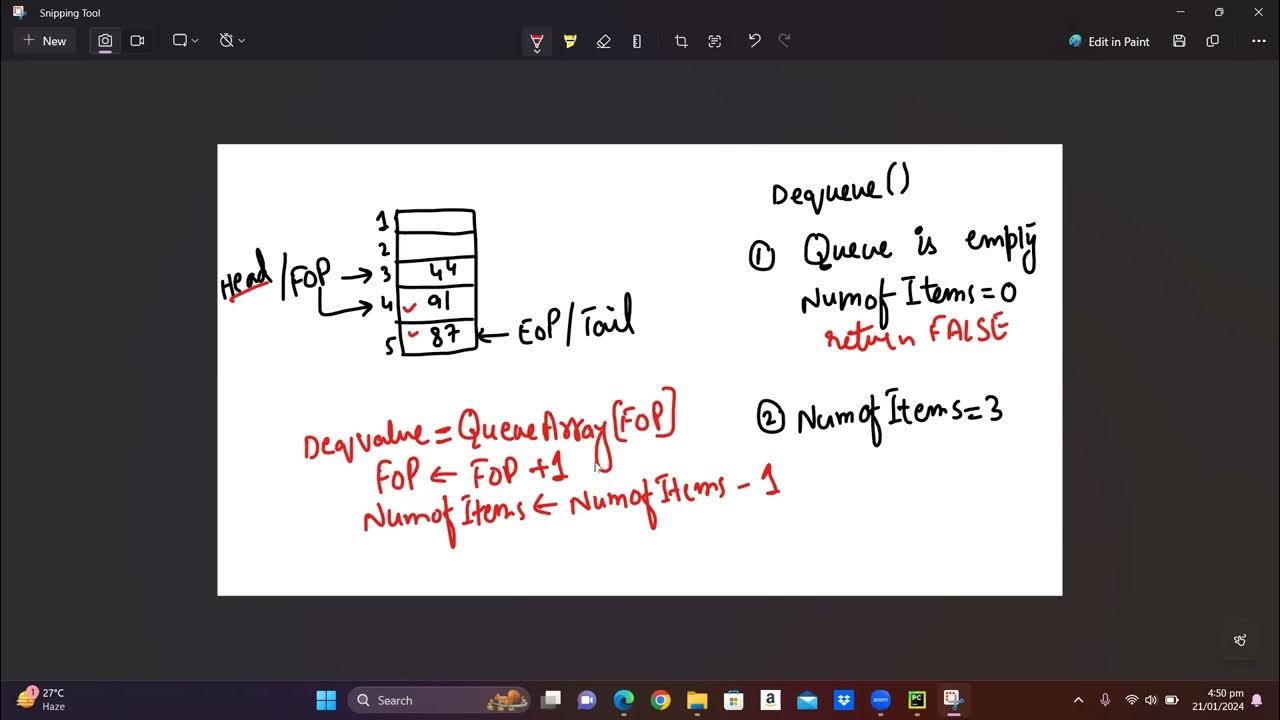 Snipping Tool
New
Edit in Paint
Dequeue()
1
2
3 44
4 91
5 87
Head/FOP
EOP/Tail
① Queue is empty
NumofItems=0
return FALSE
② NumofItems=3
Deqvalue=QueueArray[FOP]
FOP ← FOP +1
NumofItems ← NumofItems - 1
1
27°C
Haze
Search
zoom
PC
4:50 pm
21/01/2024